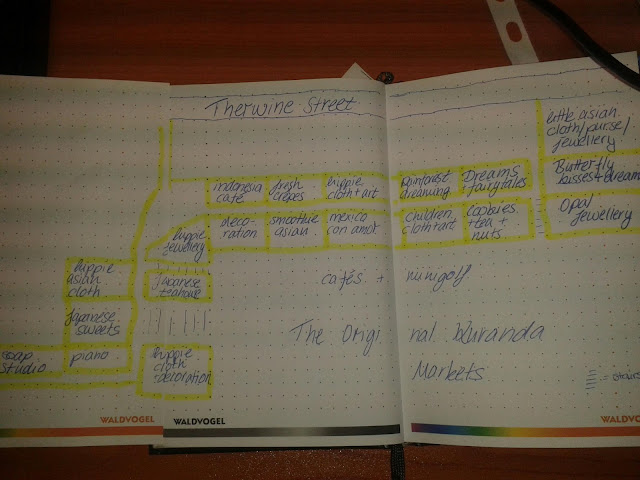 Therwine Street
little asian
cloth/purse/
jewellery
indonesia
café
fresh
crêpes
hippie
cloth+art
Rainforest
dreaming
Dreams
fairytales
Butterfly
kisses+dream
hippie
jewellery
deco-
ration
smoothie
asian
mexico
con amor
children
cloth+art
Cookies
+tea+
nuts
Opal
Jewellery
hippie
asian
cloth
Japanese
teahouse
cafés + minigolf
Japanese
sweets
The Original Kuranda
Markets
soap
studio
piano
hippie
cloth
+decoration
= stairs
WALDVOGEL
WALDVOGEL
WALDVOGEL